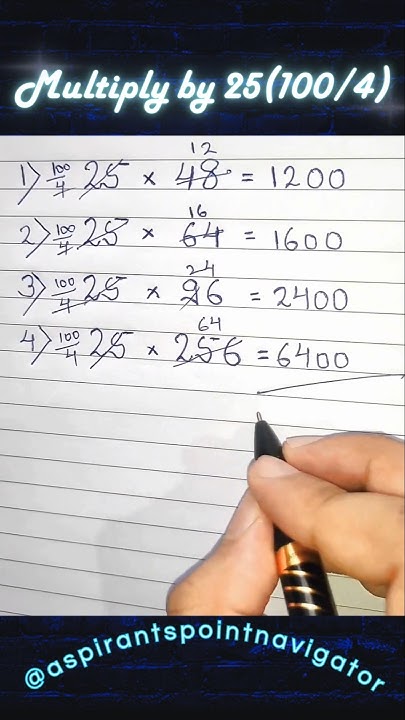 Multiply by 25(100/4)
12
1) 100/4 25 × 48 = 1200
16
2) 100/4 25 × 64 = 1600
24
3) 100/4 25 × 96 = 2400
64
4) 100/4 25 × 256 = 6400
@aspirantspointnavigator